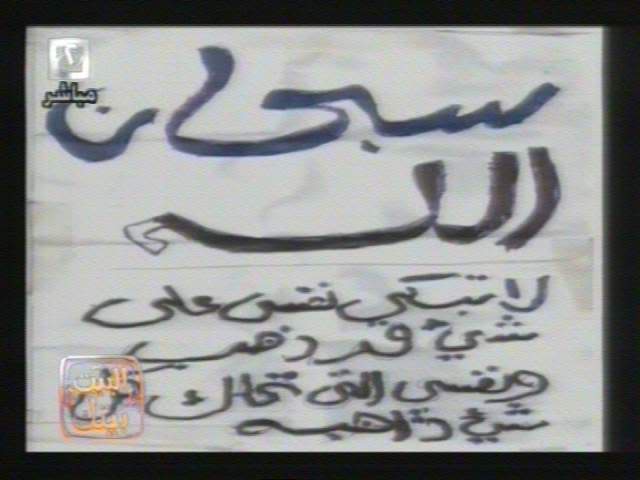 ٢
مباشر
سبحان
الله
لا تبكي نفس على
شئ قد ذهب
ونفسى التى تملك
شئ ذاهبه
البيت
بيتك